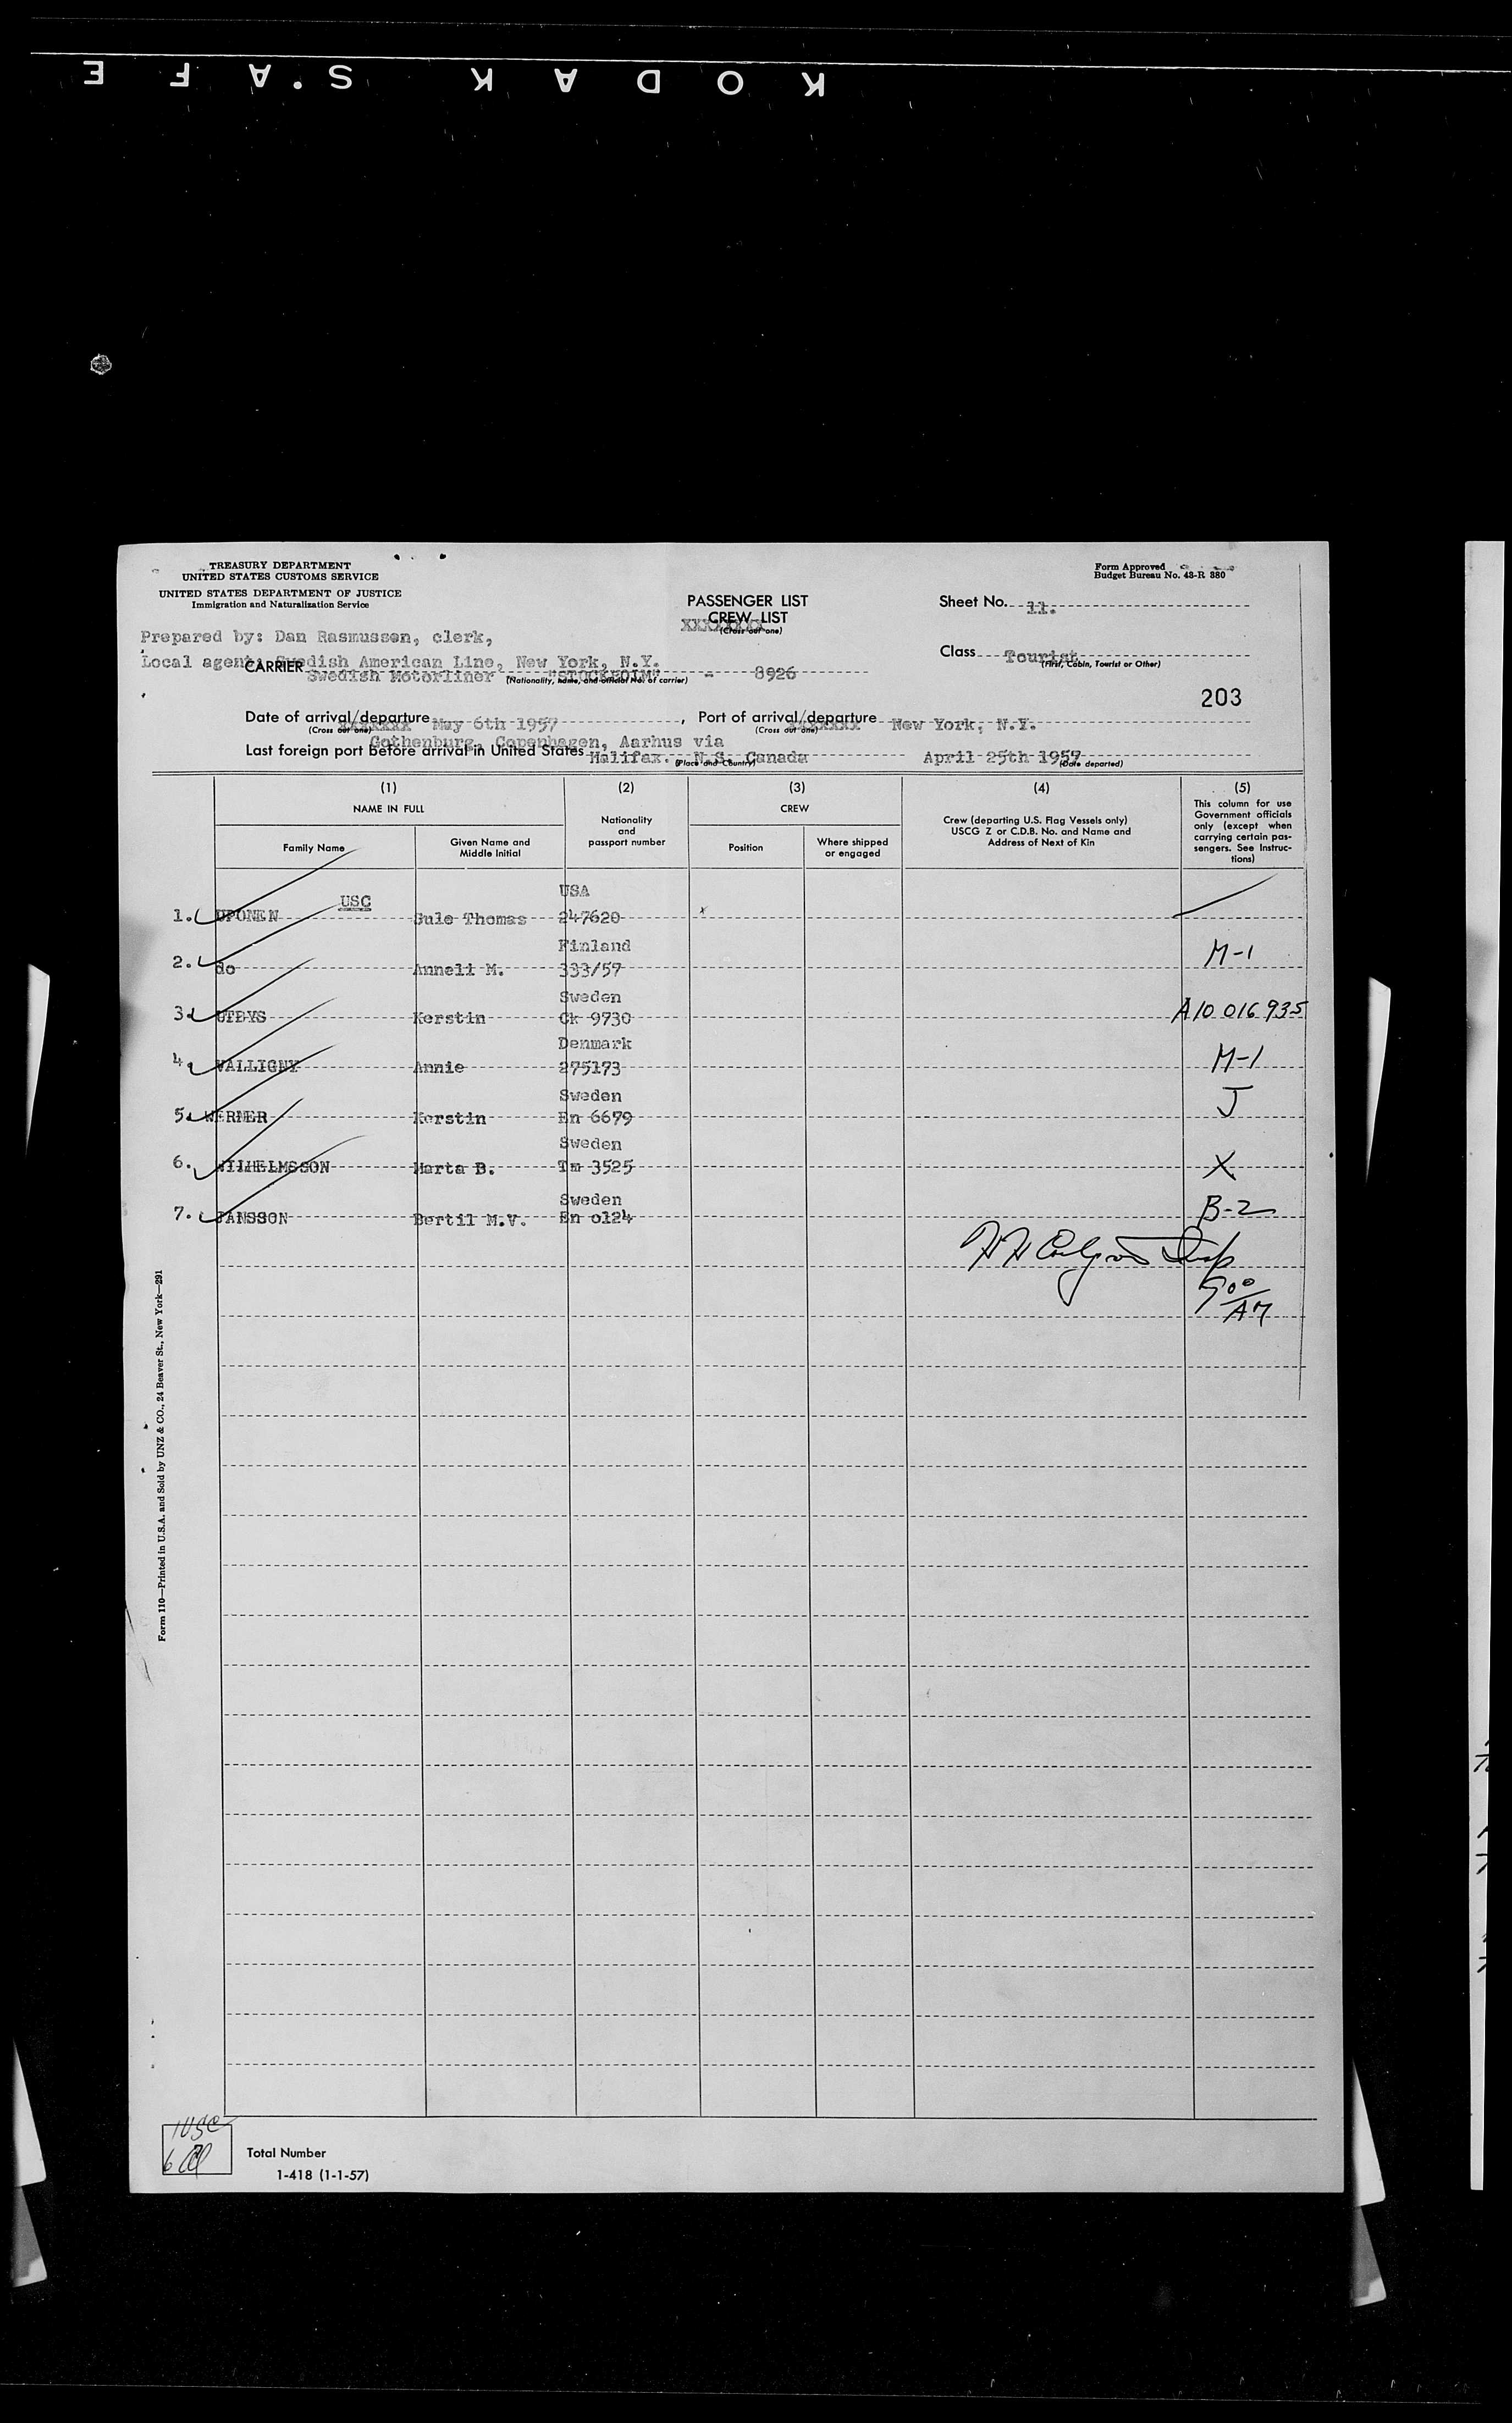 KODAK SAFE
TREASURY DEPARTMENT
UNITED STATES CUSTOMS SERVICE
UNITED STATES DEPARTMENT OF JUSTICE
Immigration and Naturalization Service
Form Approved
Budget Bureau No. 43-R 380
PASSENGER LIST
CREW LIST
XXXXXXXX
(Cross out one)
Sheet No. 11.
Prepared by: Dan Rasmussen, clerk,
Local agent: Swedish American Line, New York, N.Y.
CARRIER Swedish Motorliner "STOCKHOLM" - 8926
(Nationality, name, and official No. of carrier)
Class Tourist
(First, Cabin, Tourist or Other)
203
Date of arrival/departure May 6th 1957, Port of arrival/departure New York, N.Y.
(Cross out one) (Cross out one)
Gothenburg, Copenhagen, Aarhus via
Last foreign port before arrival in United States Halifax. N.S. Canada April 25th 1957
(Place and Country) (Date departed)
(1) (2) (3) (4) (5)
NAME IN FULL
Family Name
Given Name and Middle Initial
Nationality and passport number
CREW
Position
Where shipped or engaged
Crew (departing U.S. Flag Vessels only)
USCG Z or C.D.B. No. and Name and
Address of Next of Kin
This column for use
Government officials
only (except when
carrying certain pas-
sengers. See Instruc-
tions)
USC USA
1. UPONEN Sule Thomas 247620
Finland
2. do Anneli M. 333/57 M-1
Sweden
3. UTBYS Kerstin Ck 9730 A10 016 935
Denmark
4. VALLIGNY Annie 275173 M-1
Sweden
5. WERNER Kerstin En 6679 J
Sweden
6. WILHELMSSON Marta B. Tm 3525 X
Sweden
7. JANSSON Bertil M.V. En o124 B-2
Insp
900
AM
Form 110—Printed in U.S.A. and Sold by UNZ & CO., 24 Beaver St., New York—291
1 USC
6
7
Total Number
1-418 (1-1-57)